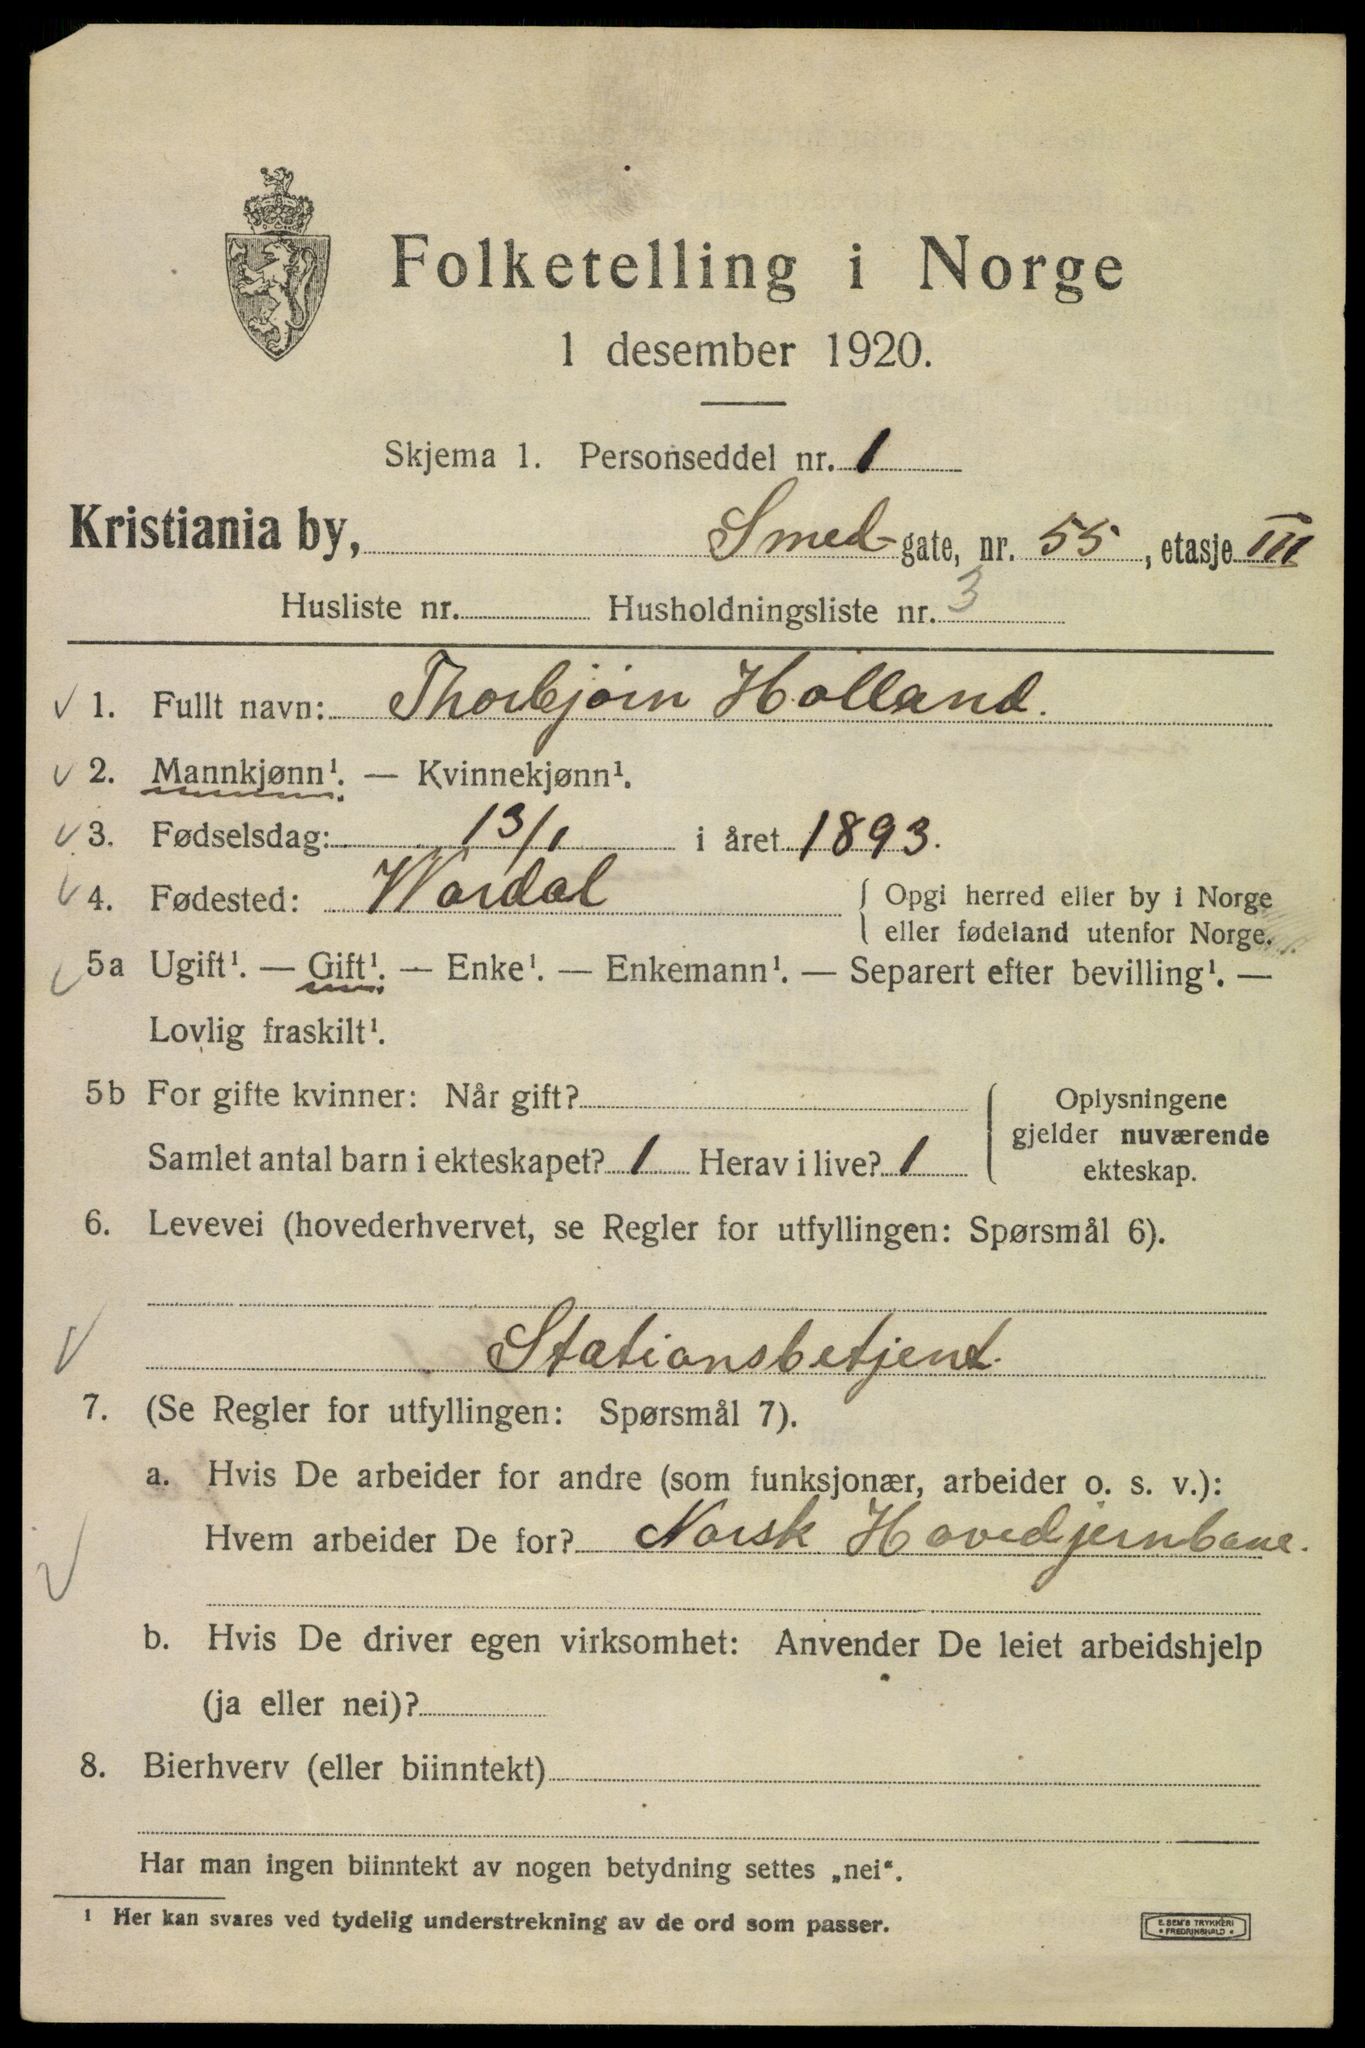 Folketelling i Norge
1 desember 1920.
Skjema 1. Personseddel nr. 1
Kristiania by, Smed- gate, nr. 55, etasje III
Husliste nr. Husholdningsliste nr. 3
1. Fullt navn: Thorbjörn Holland.
2. Mannkjønn¹. — Kvinnekjønn¹.
3. Fødselsdag: 13/1 i året 1893.
4. Fødested: Wardal { Opgi herred eller by i Norge
eller fødeland utenfor Norge.
5a Ugift¹. — Gift¹. — Enke¹. — Enkemann¹. — Separert efter bevilling¹. —
Lovlig fraskilt¹.
5b For gifte kvinner: Når gift?
Samlet antal barn i ekteskapet? 1 Herav i live? 1
Oplysningene
gjelder nuværende
ekteskap.
6. Levevei (hovederhvervet, se Regler for utfyllingen: Spørsmål 6).
Stationsbetjent.
7. (Se Regler for utfyllingen: Spørsmål 7).
a. Hvis De arbeider for andre (som funksjonær, arbeider o. s. v.):
Hvem arbeider De for? Norsk Hovedjernbane.
b. Hvis De driver egen virksomhet: Anvender De leiet arbeidshjelp
(ja eller nei)?
8. Bierhverv (eller biinntekt)
Har man ingen biinntekt av nogen betydning settes „nei“.
¹ Her kan svares ved tydelig understrekning av de ord som passer.
E. SEM'S TRYKKERI
• FREDRIKSHALD •